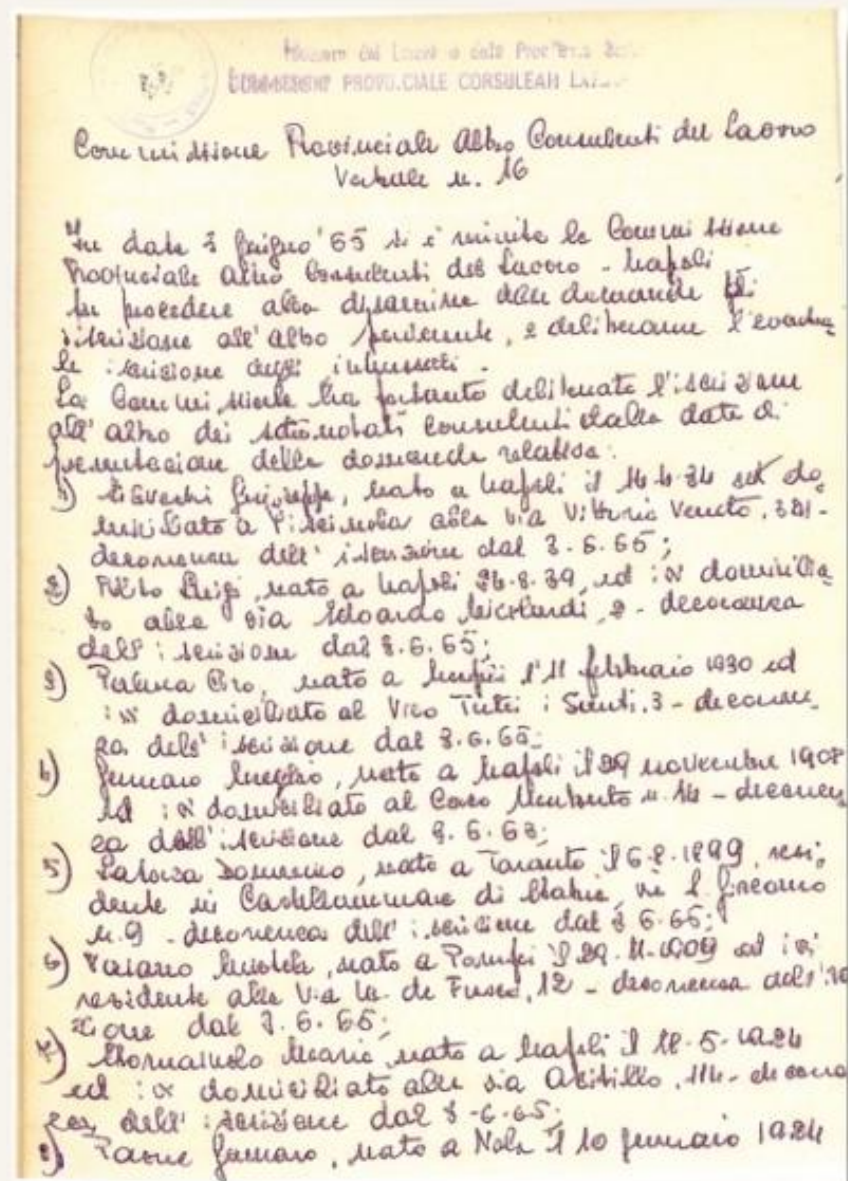 COMMISSIONE PROVINCIALE CONSULENTI
Commissione Provinciale Albo Consulenti del Lavoro
Verbale n. 16
In data 3 giugno '65 si è riunita la Commissione
Provinciale Albo Consulenti del Lavoro - Napoli
per procedere alla disamina delle domande di
iscrizione all'albo, e deliberarne
le iscrizione degli interessati.
La Commissione ha pertanto deliberato l'iscrizione
all'albo dei sottonotati consulenti dalla data di
presentazione della domanda relativa:
1) Giuseppe, nato a Napoli il ed do
miciliato a Piscinola alla via Vittorio Veneto,
decorrenza dell'iscrizione dal 3.6.65;
2) Luigi, nato a Napoli 26.8.39, ed ivi domicilia
to alla via Edoardo Nicolardi, 2 - decorrenza
dell'iscrizione dal 3.6.65;
3) Ciro, nato a Napoli l'11 febbraio 1930 ed
ivi domiciliato al Vico Tutti i Santi, 3 - decorren
za dell'iscrizione dal 3.6.65;
4) Gennaro, nato a Napoli il 29 novembre 1908
ed ivi domiciliato al Corso n. 14 - decorren
za dell'iscrizione dal
5) Domenico, nato a Taranto il 1899, resi
dente in Castellammare di Stabia,
n. 9 - decorrenza dell'iscrizione dal 3.6.65;
6) Vaiano, nato a Pompei il 29.11.1909 ed ivi
residente alla Via de Fusco, 12 - decorrenza dell'
zione dal 3.6.65;
7) Mario nato a Napoli il 18.5.1924
ed ivi domiciliato alla via 114 - decorren
za dell'iscrizione dal 3-6-65;
8) Paone Gennaro, nato a Nola il 10 gennaio 1924